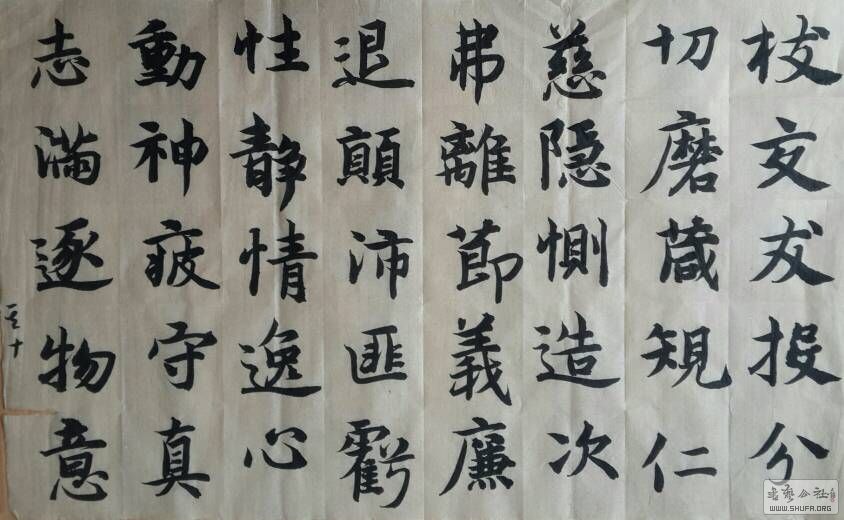 枝交友投分
切磨箴規仁
慈隐惻造次
弗離節義廉
退顛沛匪虧
性静情逸心
動神疲守真
志滿逐物意
书艺公社
WWW.SHUFA.ORG